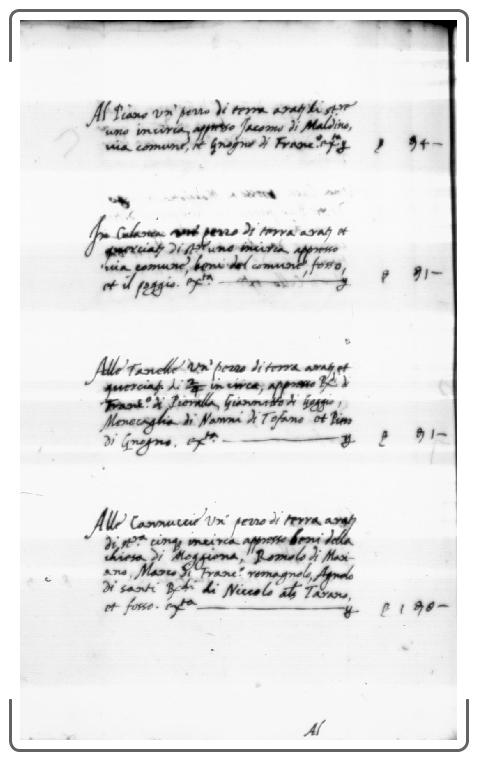 Al Piano un' pezzo di terra arati di st.re
uno incirca, appresso Jacomo di Maldino,
via comune, et Gnogno di Franc.o ex.ta
94
In Calanca un' pezzo di terra arat. et
querciat. di st.re uno incirca appresso
via comune, beni del comune, fosso,
et il poggio. ex.ta
91
Alle Fanelle un' pezzo di terra arat. et
querciat. di incirca, appresso di
Franc.o di Pieralla, Giannino di Goggio,
Monecaglia di Nanni di Tofano et Piero
di Gnogno. ex.ta
91
Alle Cannuccie un' pezzo di terra arat.
di st.ra cinq. incirca appresso beni della
chiesa di Moggiona, Romolo di Mari-
ano, Marco di Franc.o romagnolo, Agnolo
di santi di Niccolo als Tarano,
et fosso. ex.ta
1 98
Al